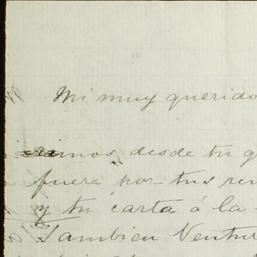 Mi muy querido
desde tu q
fuera por tus
y tu carta á la
Tambien Ventur